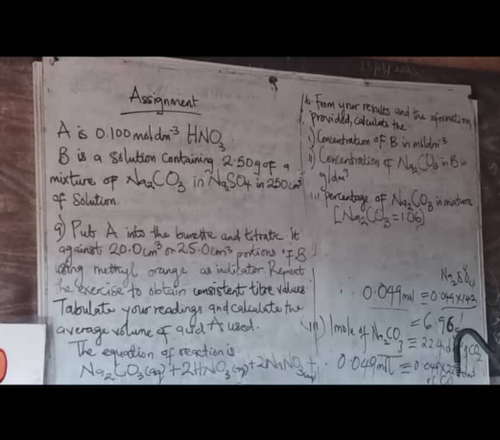 Assignment
A is 0.100 mol dm⁻³ HNO₃
B is a solution containing 2.50g of a
mixture of Na₂CO₃ in Na₂SO₄ in 250cm³
of solution.
a) Put A into the burette and titrate it
against 20.0cm³ or 25.0cm³ portions of B
using methyl orange as indicator. Repeat
the exercise to obtain consistent titre values
Tabulate your readings and calculate the
average volume of acid A used.
The equation of reaction is
Na₂CO₃(aq) + 2HNO₃(aq) → 2NaNO₃(aq) +
b. From your results and the information
provided, calculate the
i) Concentration of B in mol dm⁻³
ii) Concentration of Na₂CO₃ in B in
g/dm³
iii percentage of Na₂CO₃ in mixture
[Na₂CO₃ = 106]
0.049 mol = 0.049 x 142
= 6.96g
iii) 1 mole of Na₂CO₃ = 22.4 CO₂
0.049 = 0.049 x